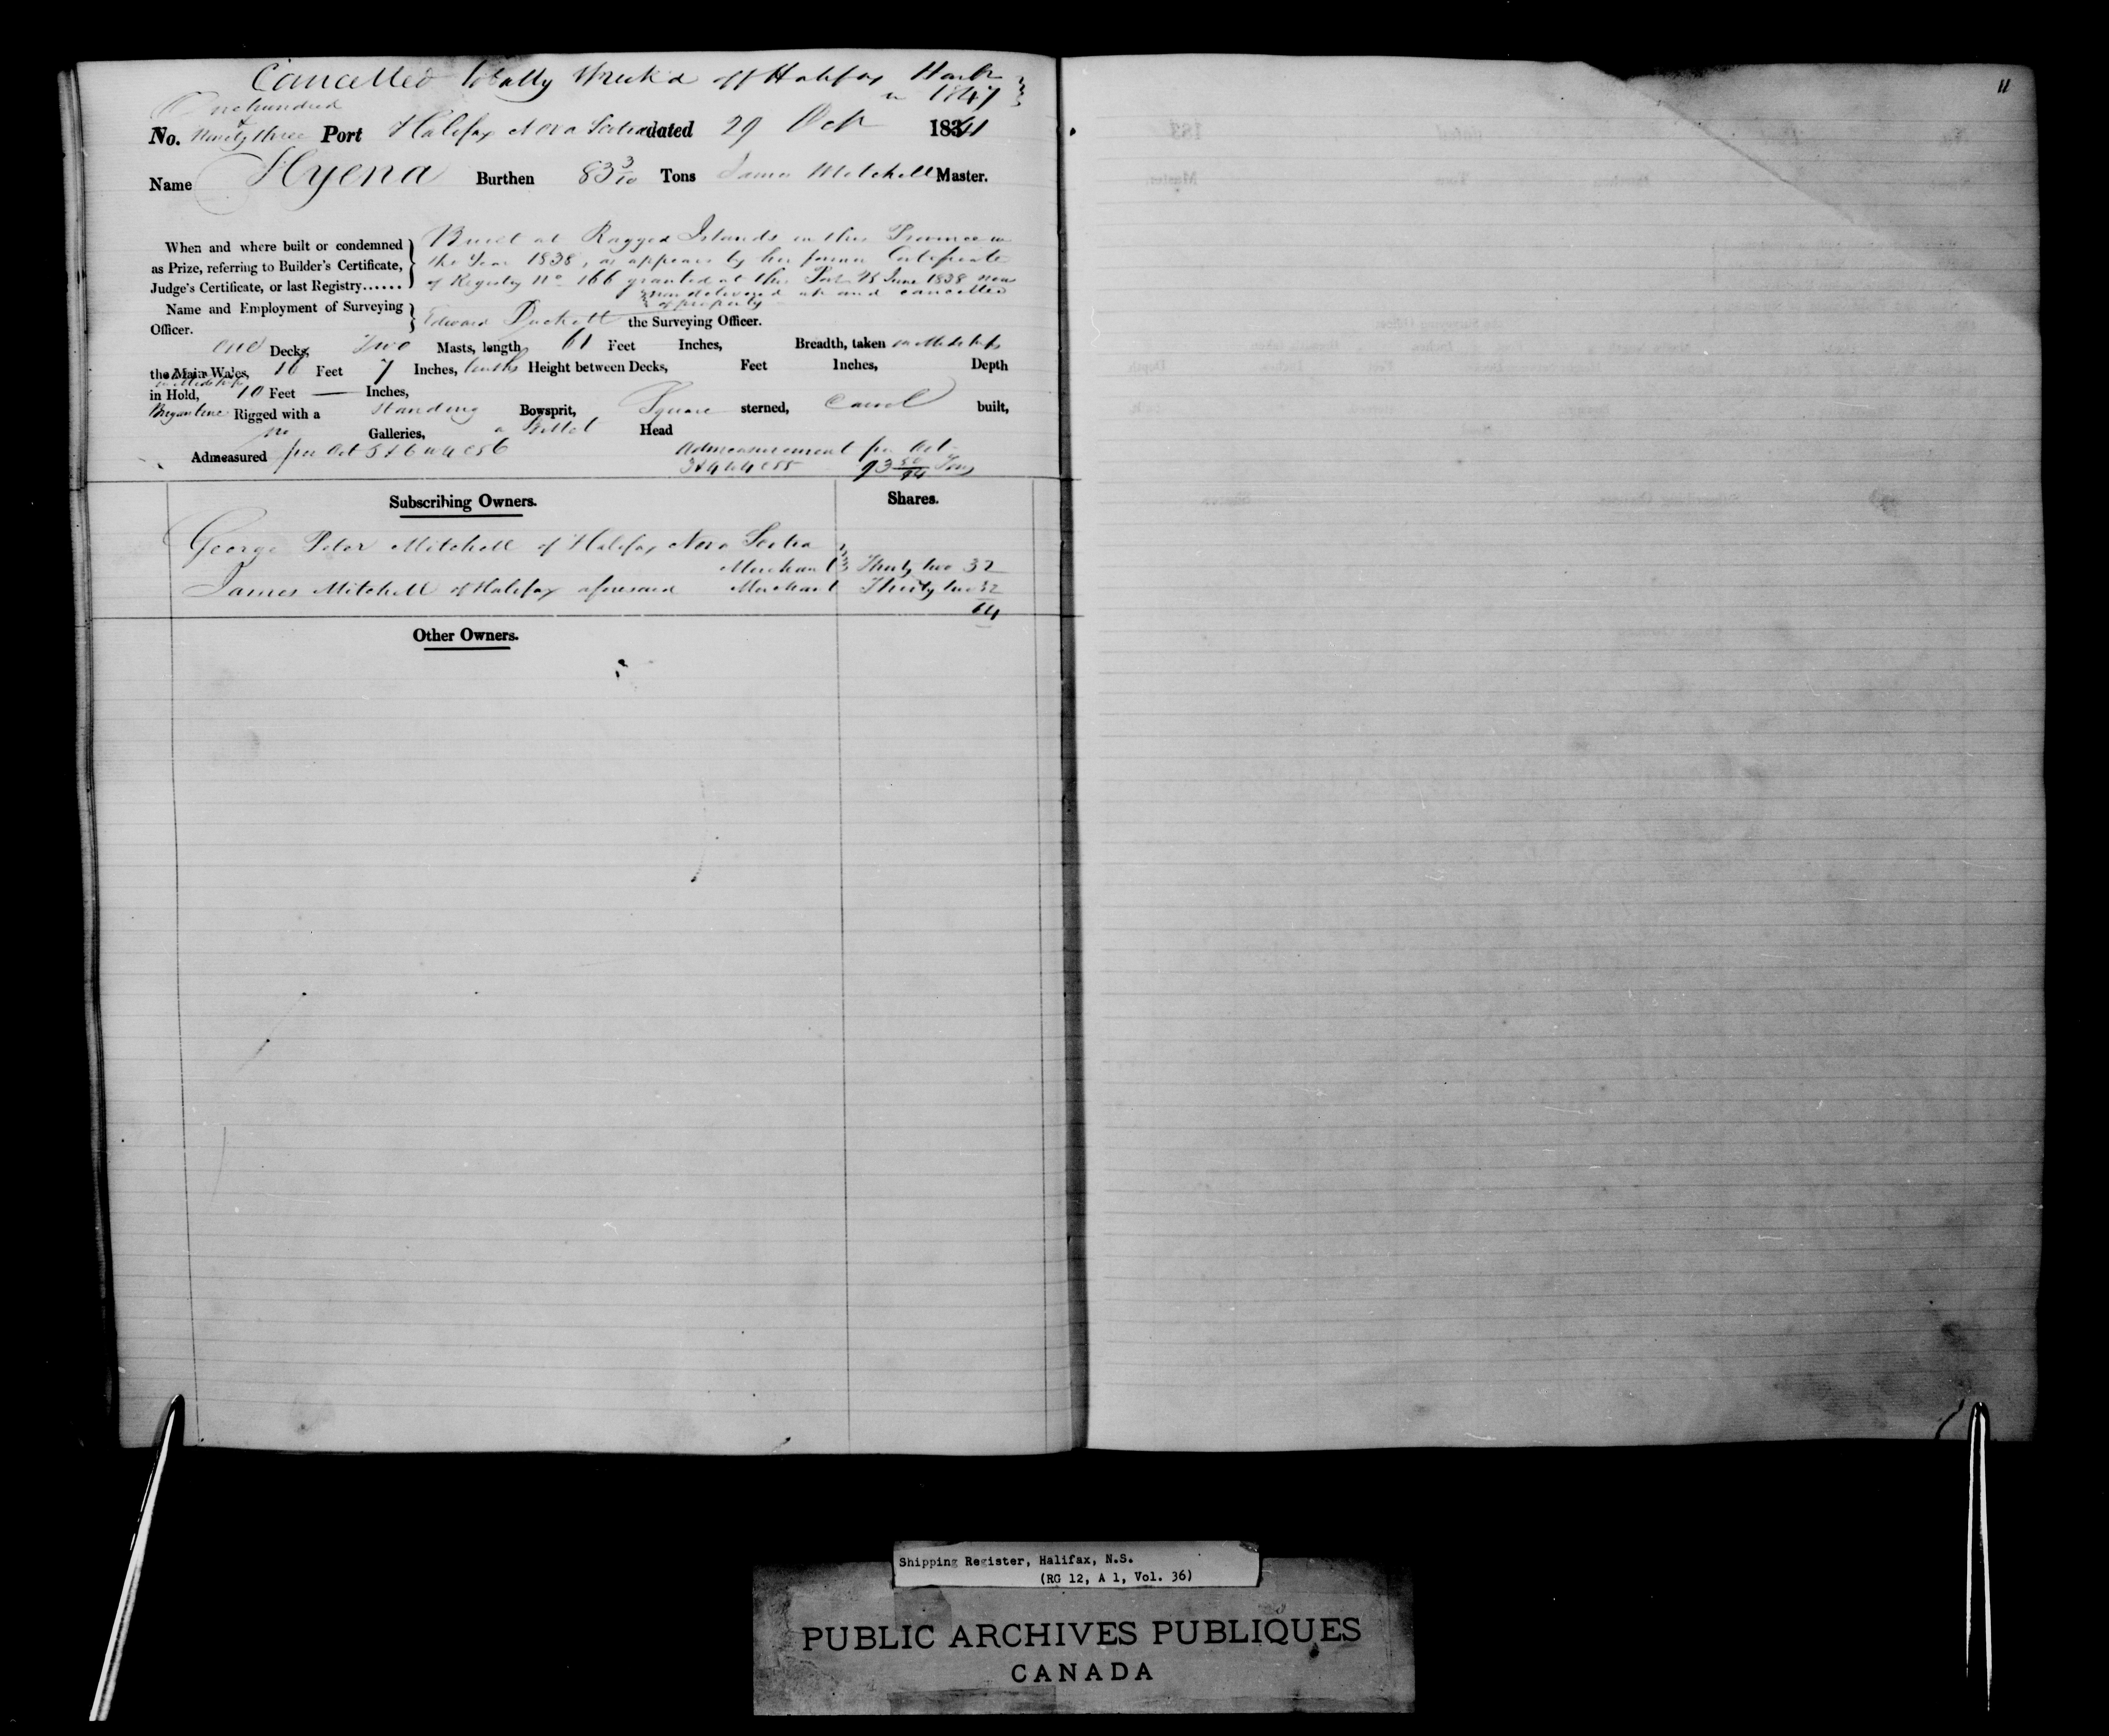 Cancelled totally Wreck'd off Halifax Harbr
in 1847
11
One hundred
&
No. Ninety three Port Halifax Nova Scotia dated 29 Oct 1841
Name Hyena Burthen 83 3/10 Tons James Mitchell Master.
When and where built or condemned
as Prize, referring to Builder's Certificate,
Judge's Certificate, or last Registry......
Built at Ragged Islands in this Province in
the Year 1838, as appears by her former Certificate
of Registry No 166 granted at this Port 28 June 1838 now
delivered up and cancelled
of property
Name and Employment of Surveying
Officer.
Edward Duckett the Surveying Officer.
One Decks, Two Masts, length 61 Feet Inches, Breadth, taken in Midships
the Main Wales, 16 Feet 7 Inches, tenths Height between Decks, Feet Inches, Depth
in Midships
in Hold, 10 Feet — Inches,
Brigantine Rigged with a Standing Bowsprit, Square sterned, Carvel built,
no Galleries, a Billet Head
Admeasured per Act 5 & 6 W 4 C 56 Admeasurement per Act
3 & 4 W 4 C 55 93 50/94 Tons
Subscribing Owners. Shares.
George Peter Mitchell of Halifax Nova Scotia
Merchant Thirty two 32
James Mitchell of Halifax aforesaid Merchant Thirty two 32
64
Other Owners.
Shipping Register, Halifax, N.S.
(RG 12, A 1, Vol. 36)
PUBLIC ARCHIVES PUBLIQUES
CANADA